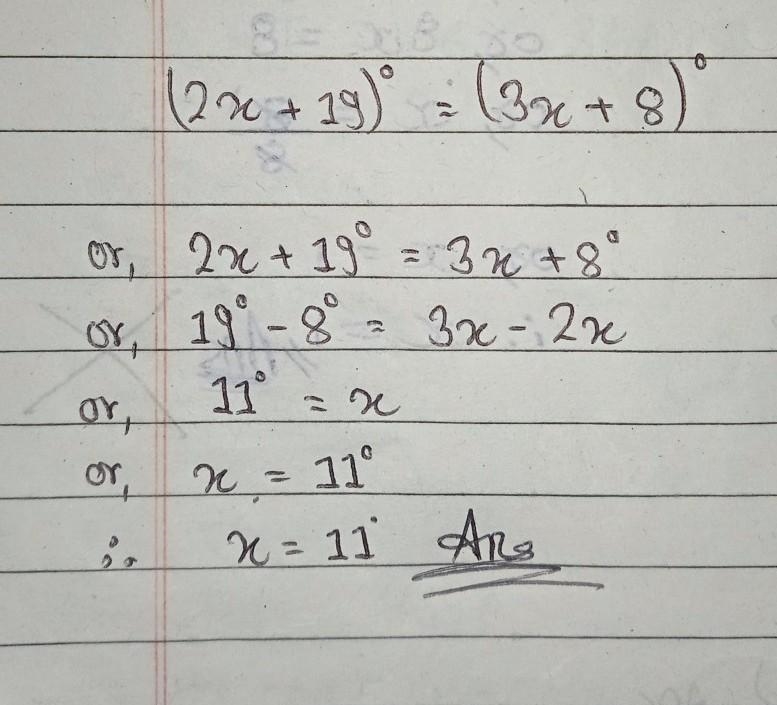 (2x + 19)° = (3x + 8)°
or, 2x + 19° = 3x + 8°
or, 19° - 8° = 3x - 2x
or, 11° = x
or, x = 11°
∴ x = 11° Ans